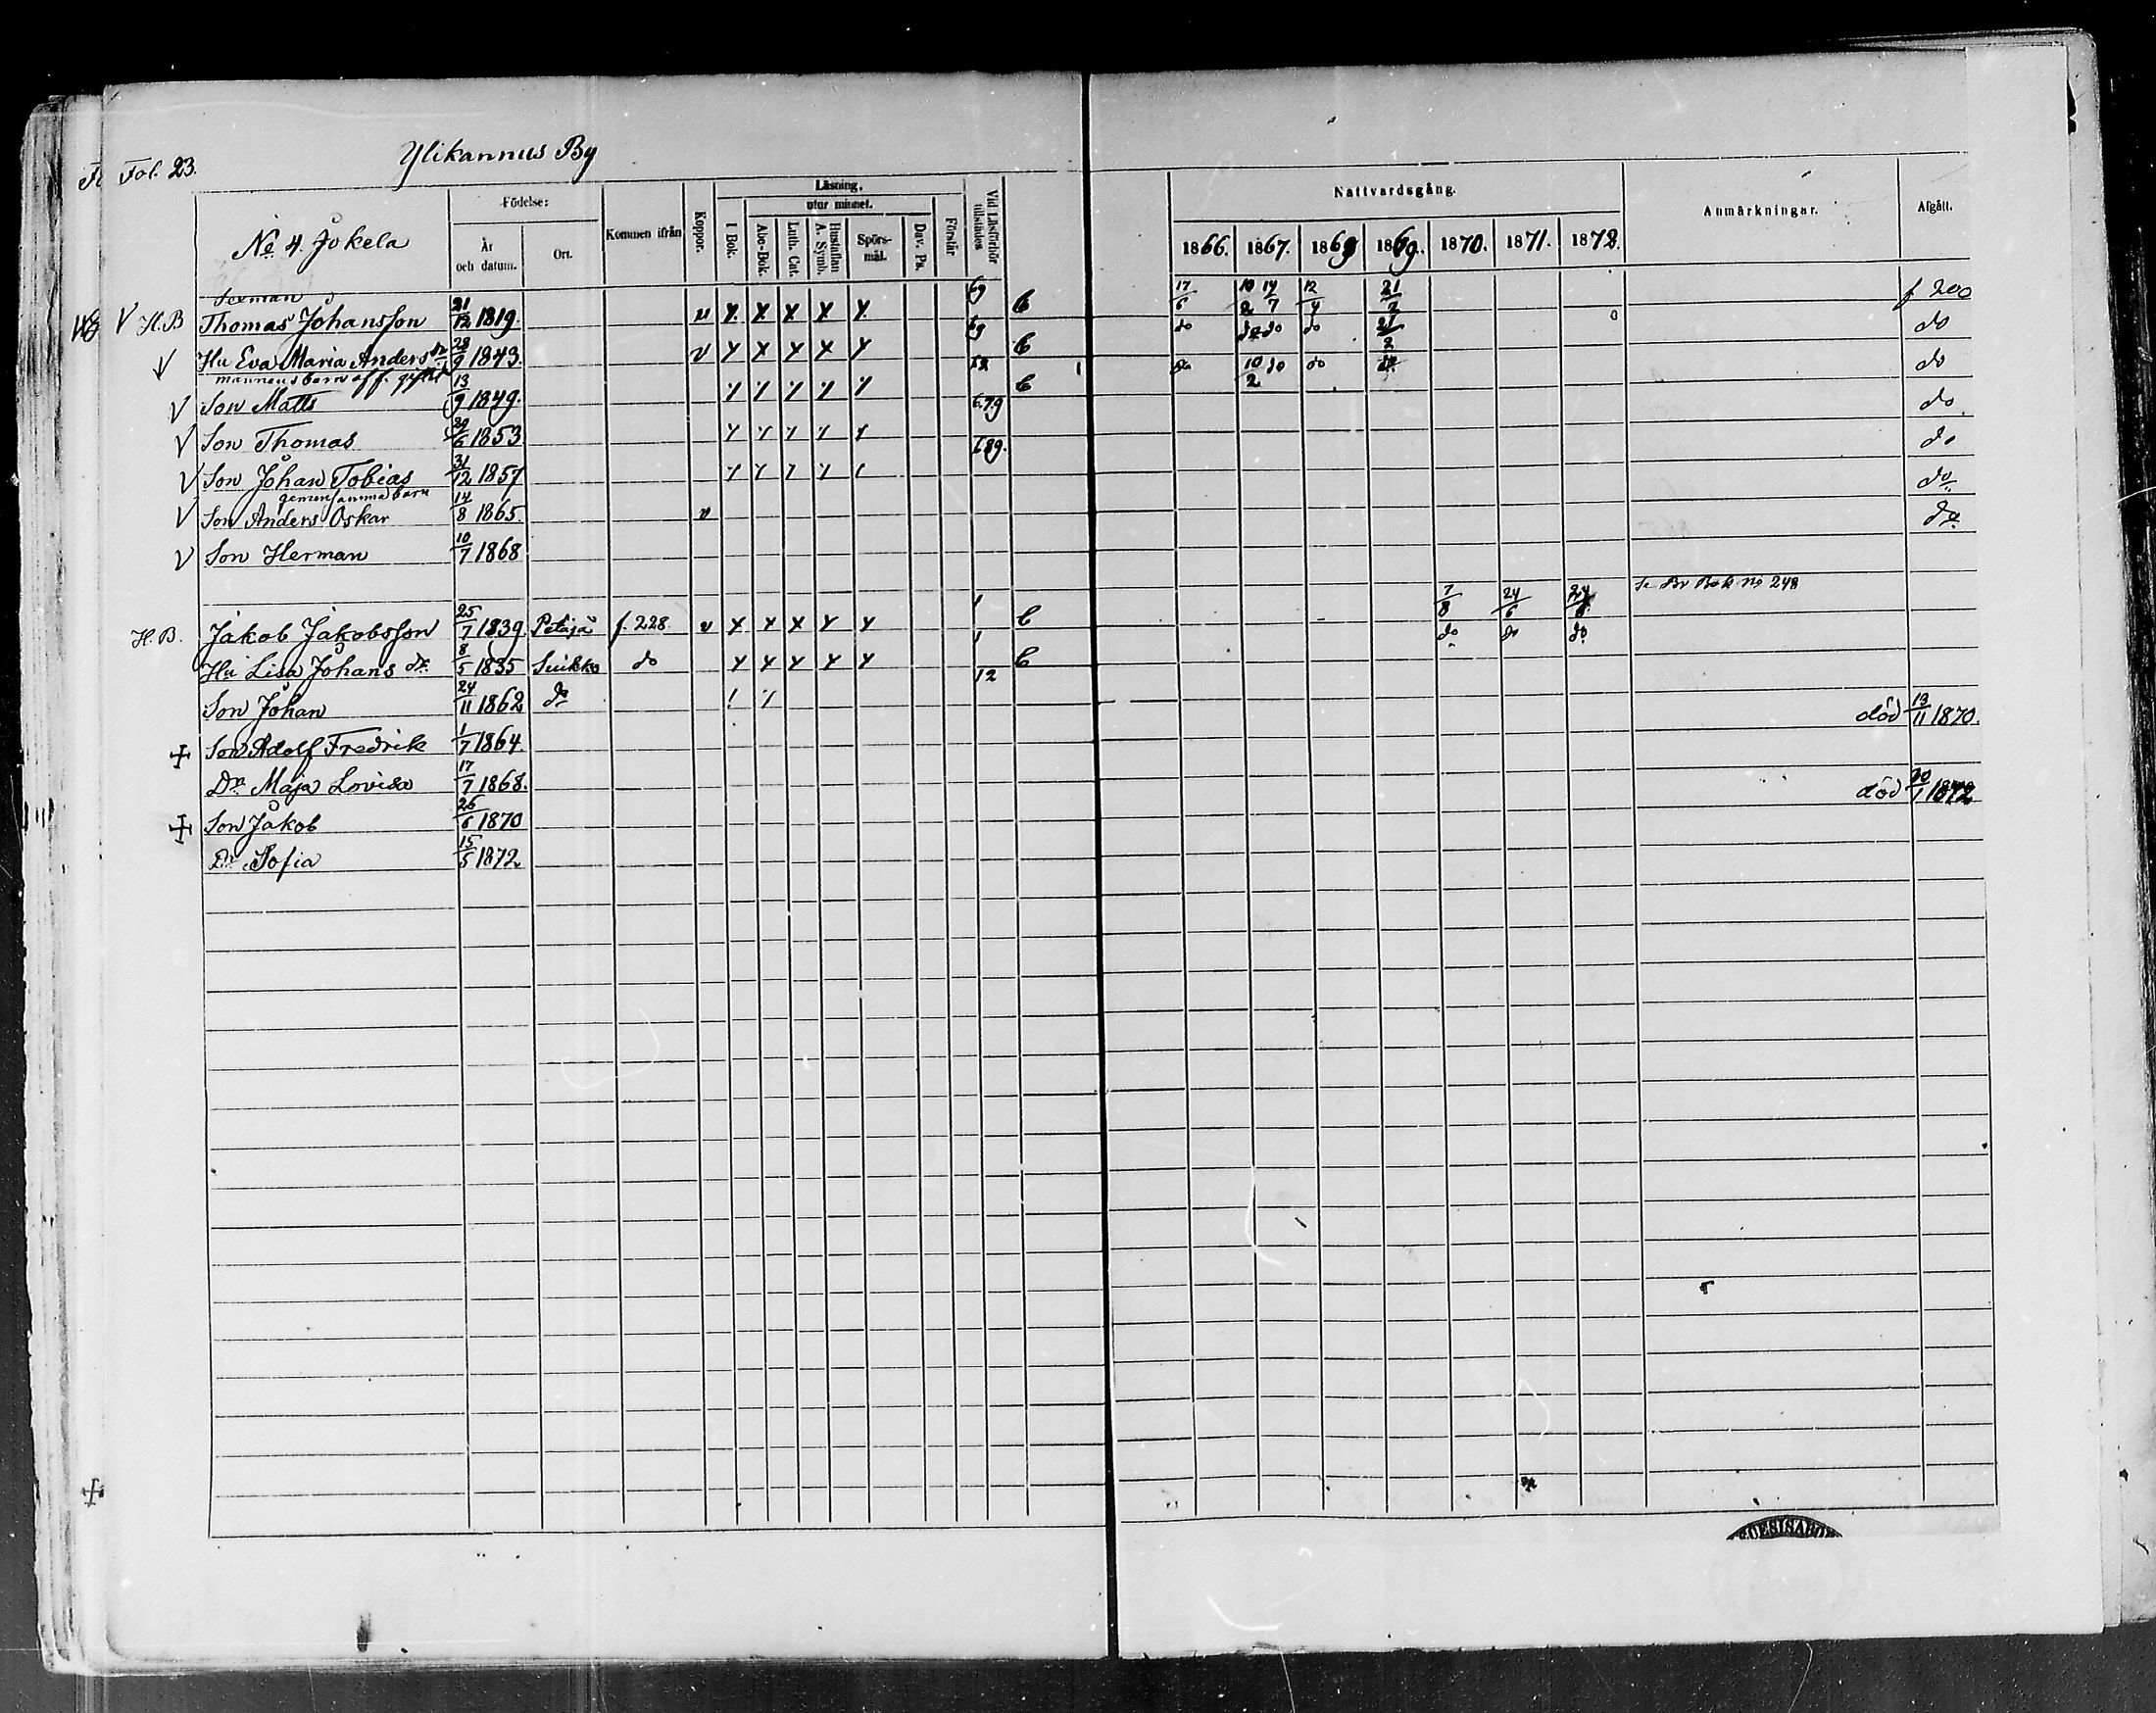 Fol. 23. Ylikannus By
No 4. Jokela
Födelse: År och datum. Ort. Kommen ifrån Koppor. Läsning. I Bok. utur minnet. Abc-Bok. Luth. Cat. Hustaflan A. Symb. Spörs-mål. Dav. Ps. Förstår Vid Läsförhör tillstädes Nattvardsgång. 1866. 1867. 1869 1869. 1870. 1871. 1872. Anmärkningar. Afgått.
Sexman
V H.B Thomas Johansson 21/12 1819. v x x x x x 69 C 17/6 10/2 14/7 12/4 21/2 f 200
V Hu Eva Maria Anders dr 28/9 1843. v x x x x x 69 C do do do do 21/2 do
mannens barn af f. gifte
V Son Matts 13/9 1849. 12 C do 10/2 do do do do
V Son Thomas 29/6 1853 6.7.9 do
V Son Johan Tobias 31/12 1857 689. do
gemensamma barn
V Son Anders Oskar 14/8 1865. v do
V Son Herman 10/7 1868 do
H.B. Jakob Jakobsson 25/7 1839 Petäjä f. 228 v x x x x x 1 C 7/8 24/6 24/6 Se Br Bok No 248
Hu Lisa Johans dr. 8/5 1835 Suikko do x x x x x 1 C do do do
Son Johan 24/11 1862 do 12
+ Son Adolf Fredrik 1/7 1864. död 13/11 1870.
Dr. Maja Lovisa 17/7 1868.
+ Son Jakob 26/6 1870 död 30/1 1872
Dr. Sofia 15/5 1872
+